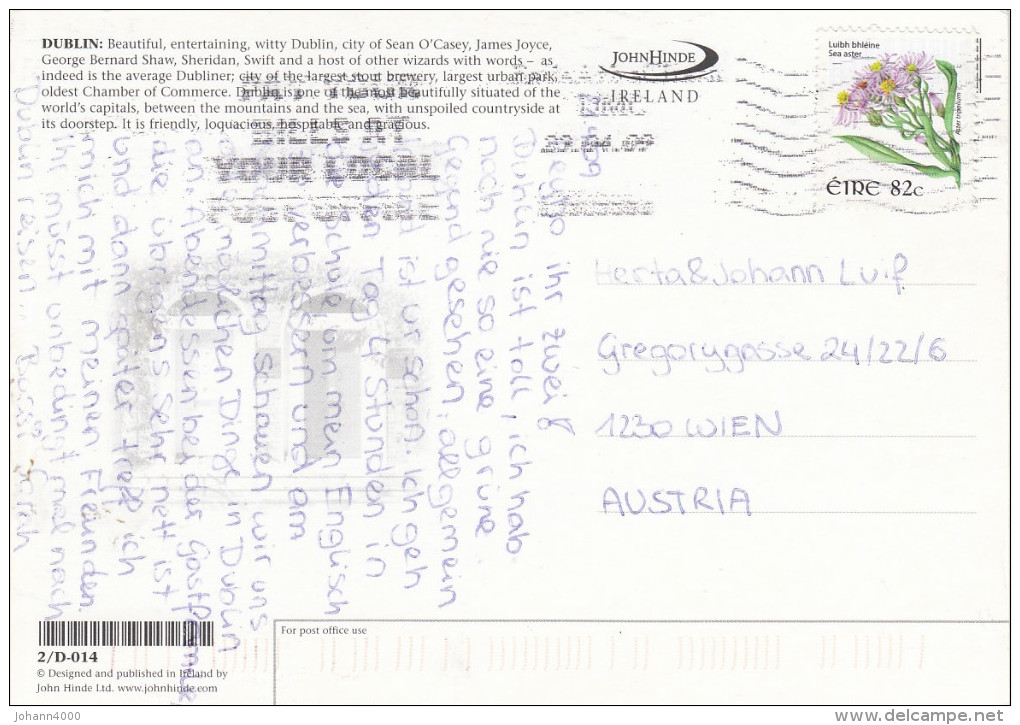 DUBLIN: Beautiful, entertaining, witty Dublin, city of Sean O'Casey, James Joyce,
George Bernard Shaw, Sheridan, Swift and a host of other wizards with words – as
indeed is the average Dubliner; city of the largest stout brewery, largest urban park,
oldest Chamber of Commerce. Dublin is one of the most beautifully situated of the
world's capitals, between the mountains and the sea, with unspoiled countryside at
its doorstep. It is friendly, loquacious, hospitable and gracious.
JOHNHINDE
IRELAND
Luibh bhléine
Sea aster
Aster tripolium
ÉIRE 82c
ihr zwei!
ist toll, ich hab
noch nie so eine grüne
Gegend gesehen, allgemein
ist ur schön. Ich geh
jeden Tag 4 Stunden in
Schule um mein Englisch
verbessern und am
Nachmittag schauen wir uns
möglichen Dinge in Dublin
an. Abendessen bei der Gastfamilie,
die übrigens sehr nett ist
und dann später treff ich
mich mit meinen Freunden.
Ihr müsst unbedingt mal nach
Dublin reisen.. Bussi Sarah
Herta & Johann Luif
Gregorygasse 24/22/6
1230 WIEN
AUSTRIA
For post office use
2/D-014
© Designed and published in Ireland by
John Hinde Ltd. www.johnhinde.com
Johann4000
www.delcampe.net